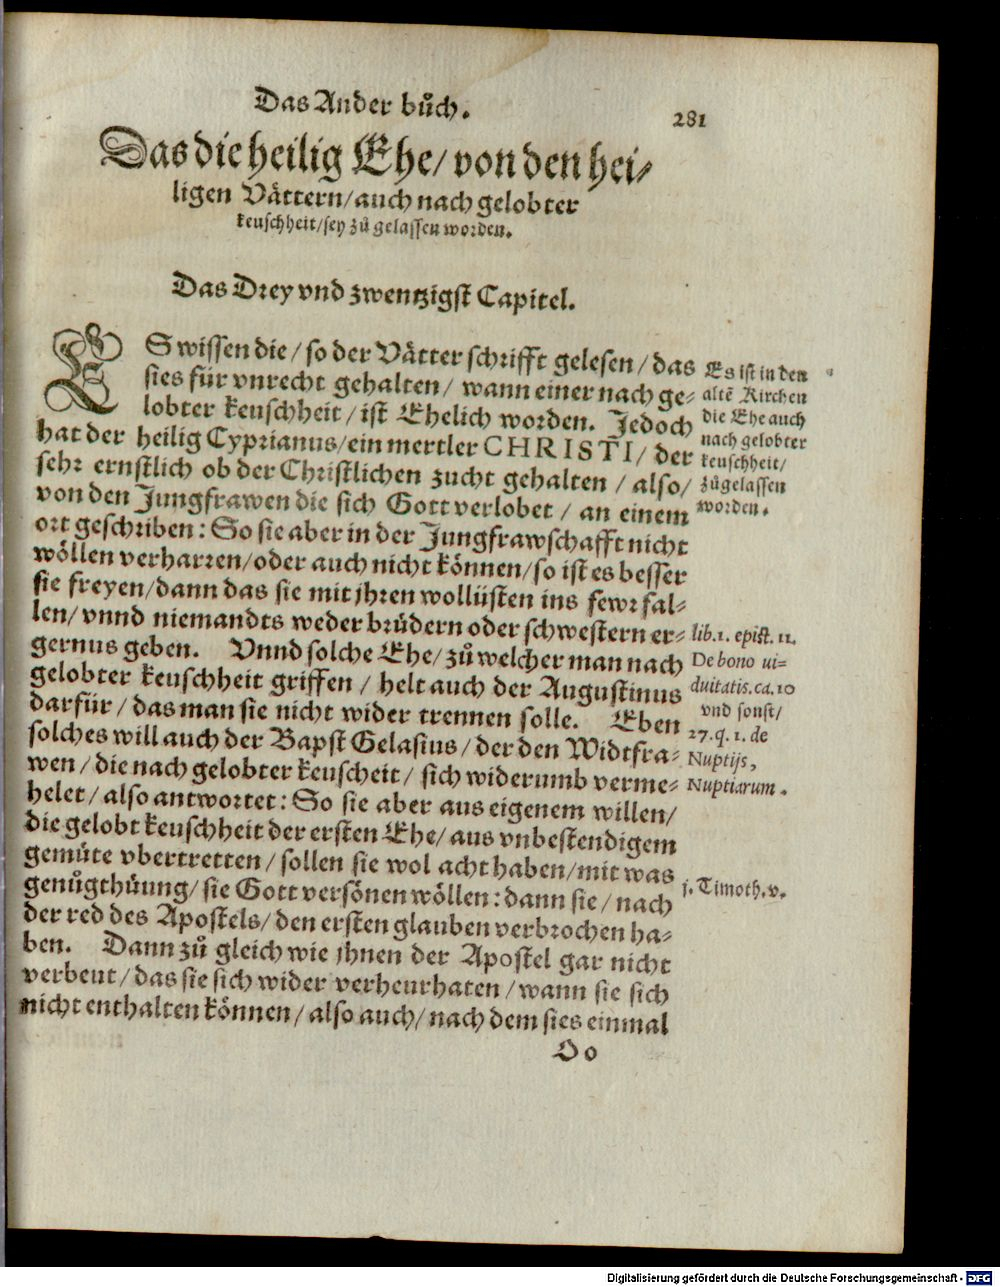 Das Ander bůch.
281
Das die heilig Ehe/ von den hei-
ligen Vättern/ auch nach gelobter
keuschheit/ sey zů gelassen worden.
Das Drey vnd zwentzigst Capitel.
ES wissen die/ so der Vätter schrifft gelesen/ das
sies für vnrecht gehalten/ wann einer nach ge-
lobter keuschheit/ ist Ehelich worden. Jedoch
hat der heilig Cyprianus/ ein mertler CHRISTI/ der
sehr ernstlich ob der Christlichen zucht gehalten/ also/
von den Jungfrawen die sich Gott verlobet/ an einem
ort geschriben: So sie aber in der Jungfrawschafft nicht
wöllen verharren/ oder auch nicht können/ so ist es besser
sie freyen/ dann das sie mit jhren wollüsten ins fewr fal-
len/ vnnd niemandts weder brüdern oder schwestern er-
gernus geben. Vnnd solche Ehe/ zů welcher man nach
gelobter keuschheit griffen/ helt auch der Augustinus
darfür/ das man sie nicht wider trennen solle. Eben
solches will auch der Bapst Gelasius/ der den Widtfra-
wen/ die nach gelobter keuscheit/ sich widerumb verme-
helet/ also antwortet: So sie aber aus eigenem willen/
die gelobt keuschheit der ersten Ehe/ aus vnbestendigem
gemüte vbertretten/ sollen sie wol acht haben/ mit was
genůgthüung/ sie Gott versönen wöllen: dann sie/ nach
der red des Apostels/ den ersten glauben verbrochen ha-
ben. Dann zů gleich wie jhnen der Apostel gar nicht
verbeut/ das sie sich wider verheurhaten/ wann sie sich
nicht enthalten können/ also auch/ nach dem sies einmal
Oo
Es ist in den
altē Kirchen
die Ehe auch
nach gelobter
keuschheit/
zůgelassen
worden.
lib.1. epist. 11.
De bono ui-
duitatis. ca. 10
vnd sonst/
27. q. 1. de
Nuptijs,
Nuptiarum.
j. Timoth. v.
Digitalisierung gefördert durch die Deutsche Forschungsgemeinschaft - DFG